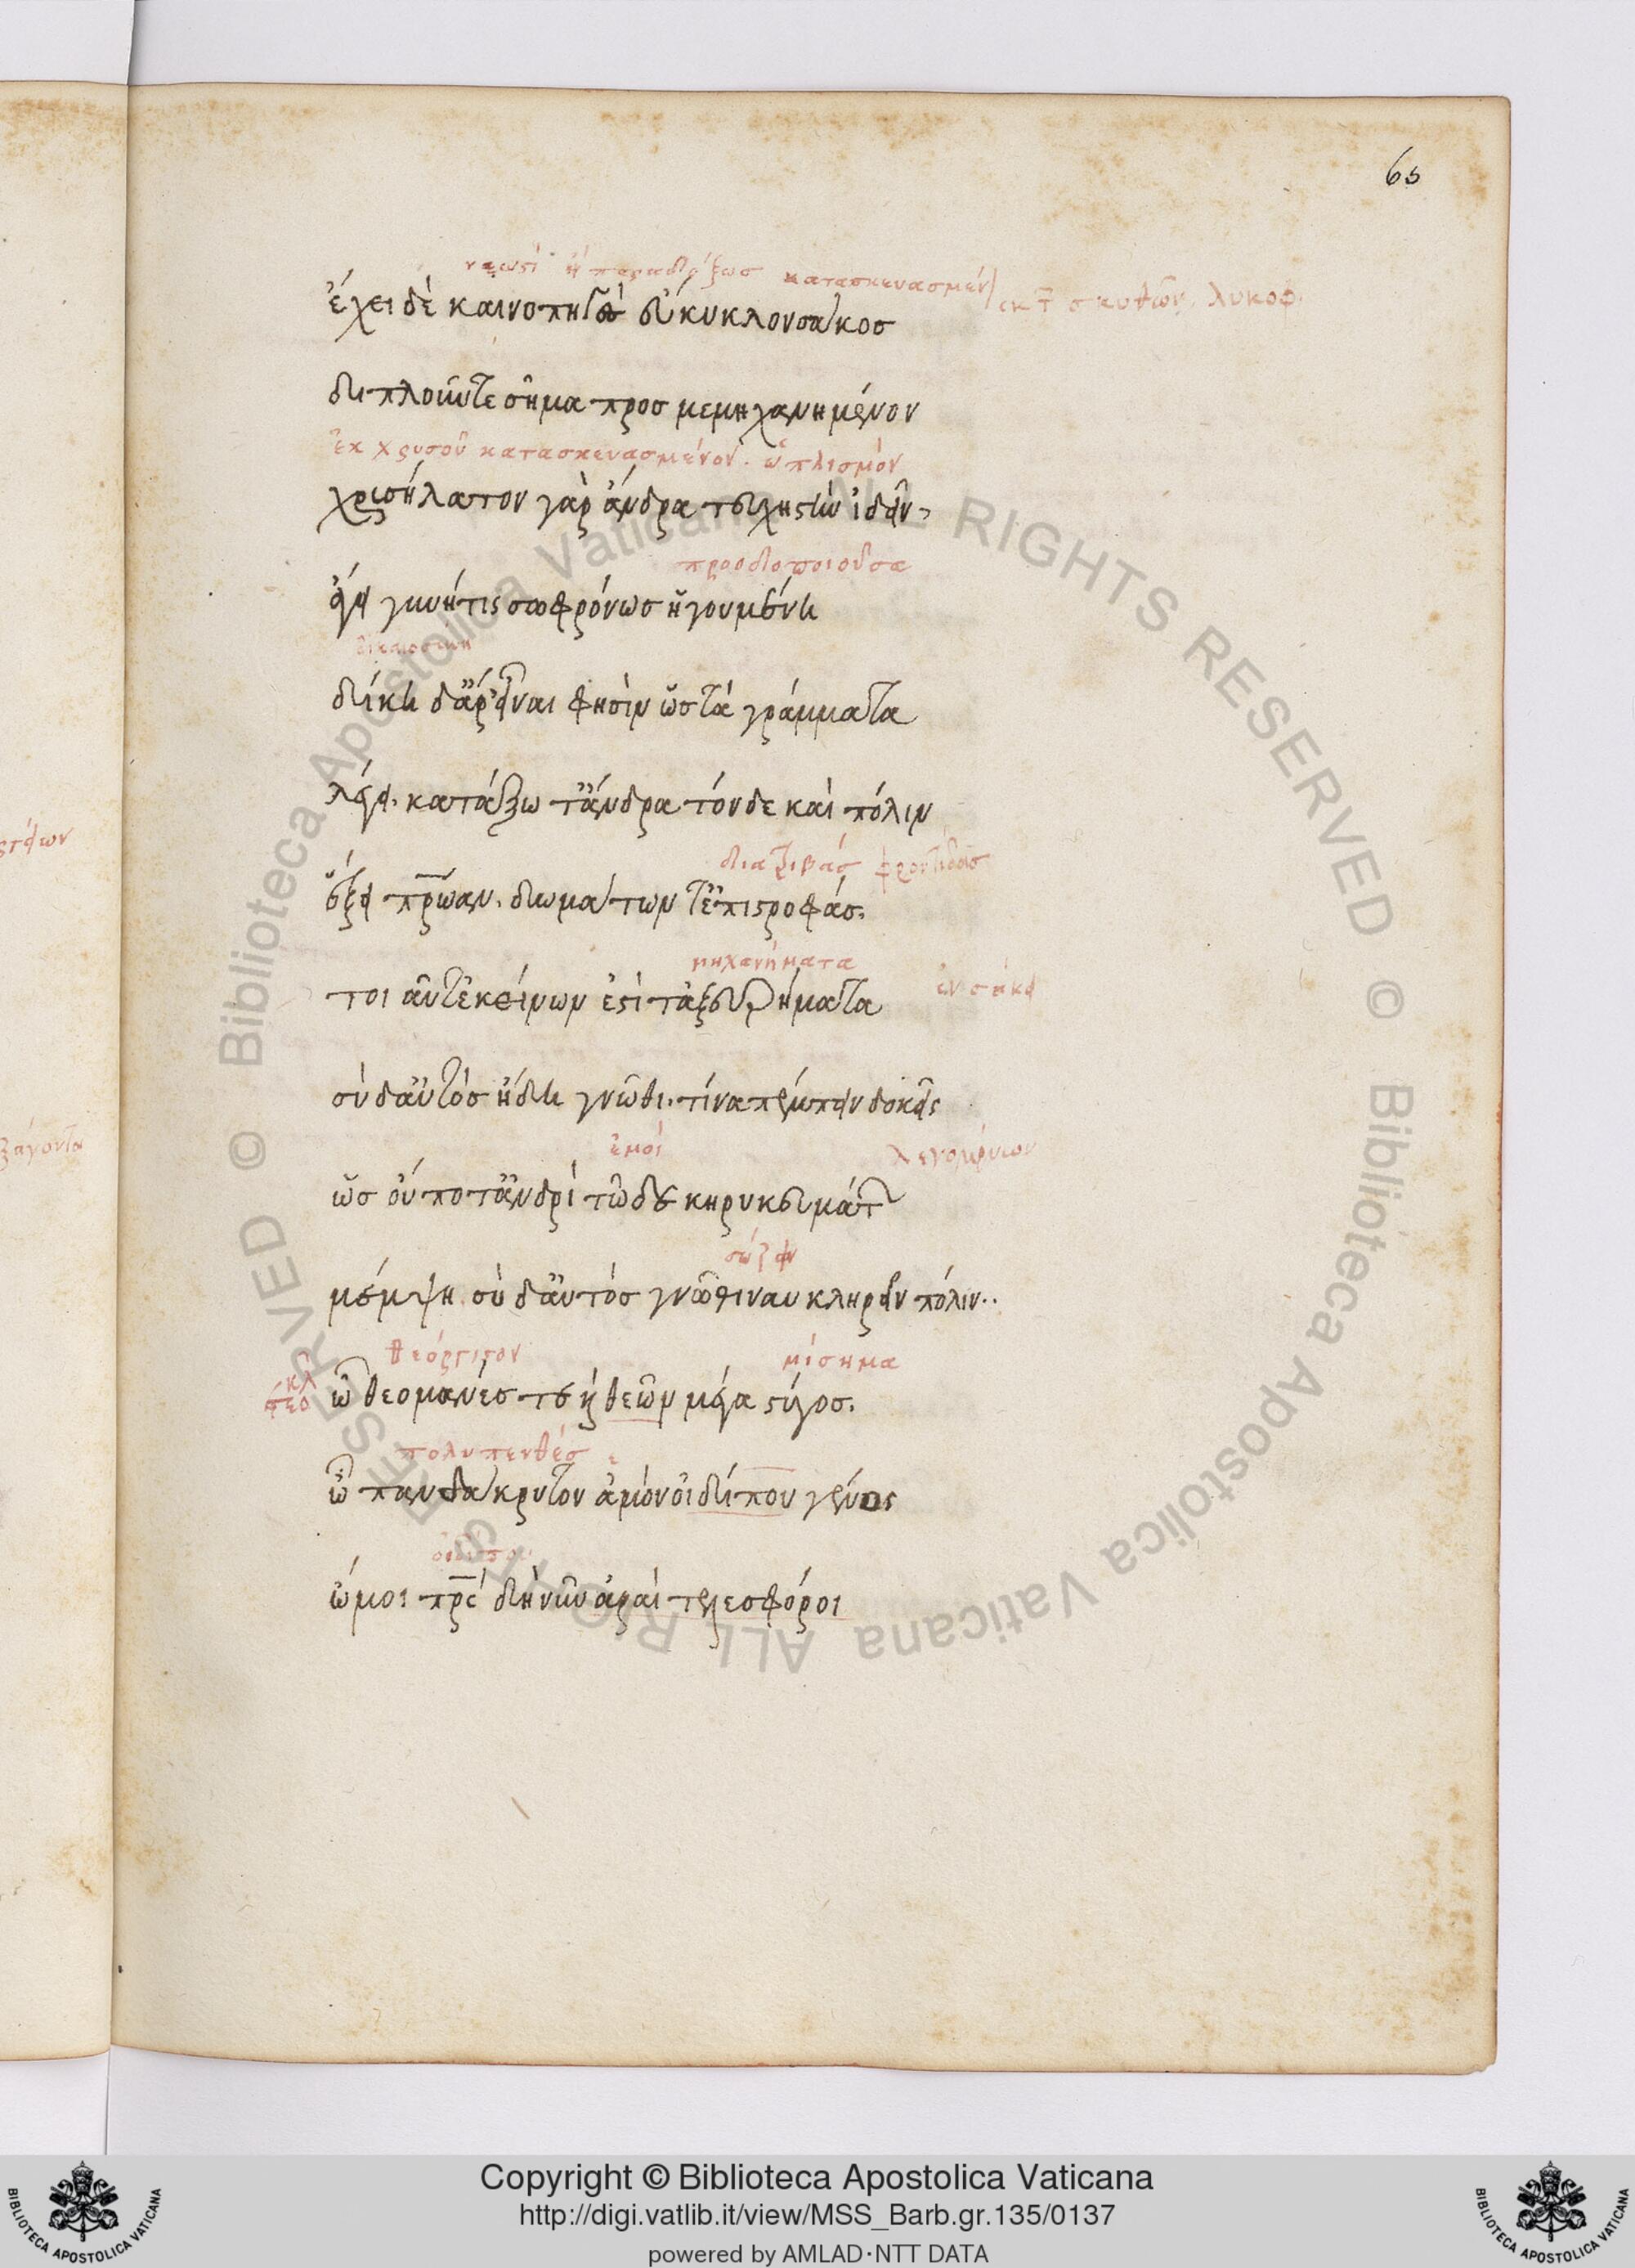 65
νεωστί ἢ παραδόξως κατασκευασμέν
ἔχει δὲ καινοπηγὲς εὔκυκλον σάκος
ἐκ τ σκυθῶν. λυκοφ.
διπλοῦν τε σῆμα προσμεμηχανημένον
ἐκ χρυσοῦ κατασκευασμένον. ὡπλισμόν
χρισήλατον γὰρ ἄνδρα τευχηστὴν ἰδεῖν,
προοδοποιοῦσα
ἄγει γυνή τις σωφρόνως ἡγουμένη
δικαιοσύνη
δίκη δ' ἄρ' εἶναι φησὶν ὡς τὰ γράμματα
λέγει. κατάξω τ' ἄνδρα τόνδε καὶ πόλιν
διατριβάς φροντίδας
ἕξει πρώαν. δωμάτων τ' ἐπιστροφάς.
μηχανήματα
τοιαῦτ' ἐκείνων ἐστὶ τἀξευρήματα
ἐν σάκει
σὺ δ' αὐτὸς ἤδη γνῶθι. τίνα πέμπειν δοκεῖς
ἐμοί λεγομένων
ὡς οὔποτ' ἀνδρὶ τῶδε κηρυκευμάτων
σώζειν
μέμψη σὺ δ' αὐτὸς γνῶθι ναυκληρεῖν πόλιν..
θεόργιστον μίσημα
ὦ θεομανές τε καὶ θεῶν μέγα στύγος.
πολυπενθές
ὦ πανδάκρυτον ἁμὸν οἰδίπου γένος
οἰδίπου
ὤμοι πρς δὴ νῦν ἀραὶ τελεσφόροι
Copyright © Biblioteca Apostolica Vaticana
http://digi.vatlib.it/view/MSS_Barb.gr.135/0137
powered by AMLAD·NTT DATA
BIBLIOTECA APOSTOLICA VATICANA
BIBLIOTECA APOSTOLICA VATICANA